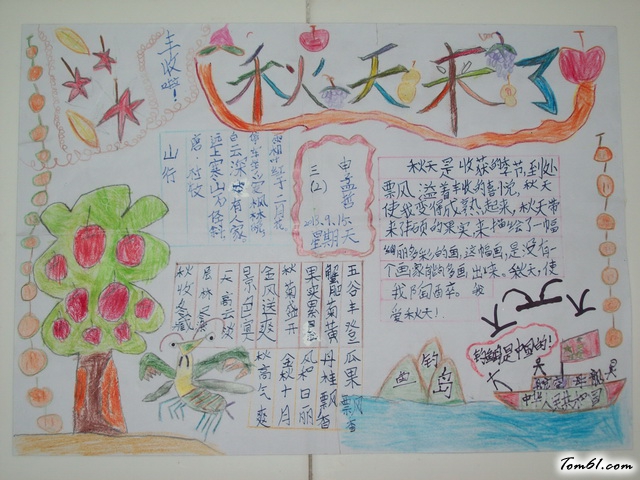 秋天来了
丰收啦!
山行
唐·杜牧
远上寒山石径斜
白云深处有人家
停车坐爱枫林晚
霜叶红于二月花
三(2)
2013.9.15
星期天
秋天是收获的季节,到处
飘风,溢着丰收的喜悦,秋天
使我变得成熟起来,秋天带
来丰硕的果实,来描绘了一幅
绚丽多彩的画,这幅画,是没有一
个画家能的多画出来。秋天,使
我陶醉。我
爱秋天!
五谷丰登
瓜果飘香
蟹肥菊黄
丹桂飘香
果实累累
风和日丽
秋菊盛开
金秋十月
金风送爽
秋高气爽
景色宜
天高云淡
层林尽染
秋收冬藏
钓鱼岛是中国的!
钓
鱼
岛
中华人民共和国
Tom61.com